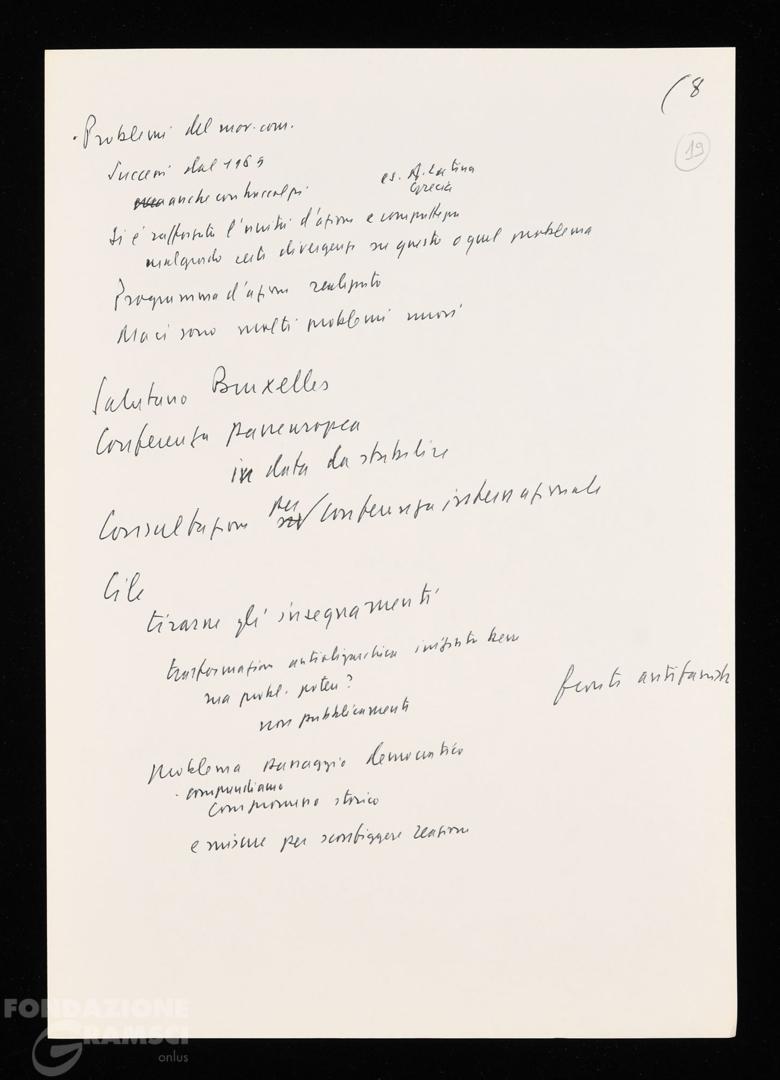 (8
19
· Problemi del mov. com.
Successi dal 1969
anche con brccolpi
es. A. Latina
Grecia
Si è rafforzata l'unità d'azione e compattezza
malgrado certe divergenze su questo o quel problema
Programma d'azione realizzato
Ma ci sono molti problemi nuovi
Salutano Bruxelles
Conferenza paneuropea
in data da stabilire
Consultazioni per conferenza internazionale
Cile
tirarne gli insegnamenti
trasformazioni antioligarchica iniziata bene
ma probl. potere?
non pubblicamente
fronte antifascista
problema passaggio democratico
· comprendiamo
compromesso storico
e misure per sconfiggere reazione
FONDAZIONE
GRAMSCI
onlus